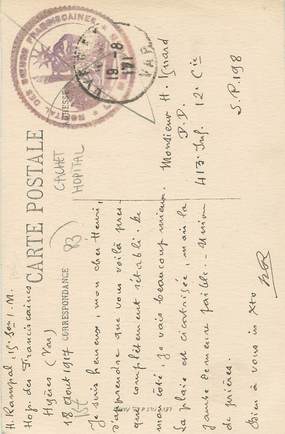 CARTE POSTALE
CORRESPONDANCE
H. Rampal, 15e Son I. M.
Hop. des Franciscaines
Hyères (Var)
18 Aout 1917
Je suis heureux, mon cher Henri,
d'apprendre que vous voilà pres-
que complètement rétabli. De
mon côté, je vais beaucoup mieux.
La plaie est cicatrisée, mais la
jambe demeure faible. - Union
de prières.
Bien à vous in Xto
HR
Monsieur H. Isnard
P.D.
413e Inf. 12e Cie
S.P. 198
CACHET
HOPITAL
HOPITAL DES SŒURS FRANCISCAINES
18-8
VAR